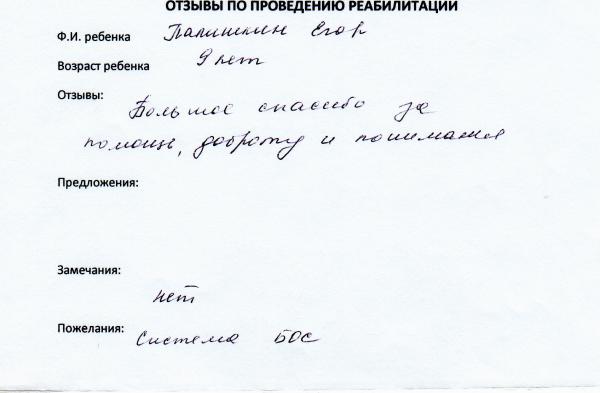 ОТЗЫВЫ ПО ПРОВЕДЕНИЮ РЕАБИЛИТАЦИИ
Ф.И. ребенка Палишкин Егор
Возраст ребенка 9 лет
Отзывы:
Большое спасибо за
помощь, доброту и понимание
Предложения:
Замечания:
нет
Пожелания: Система БОС